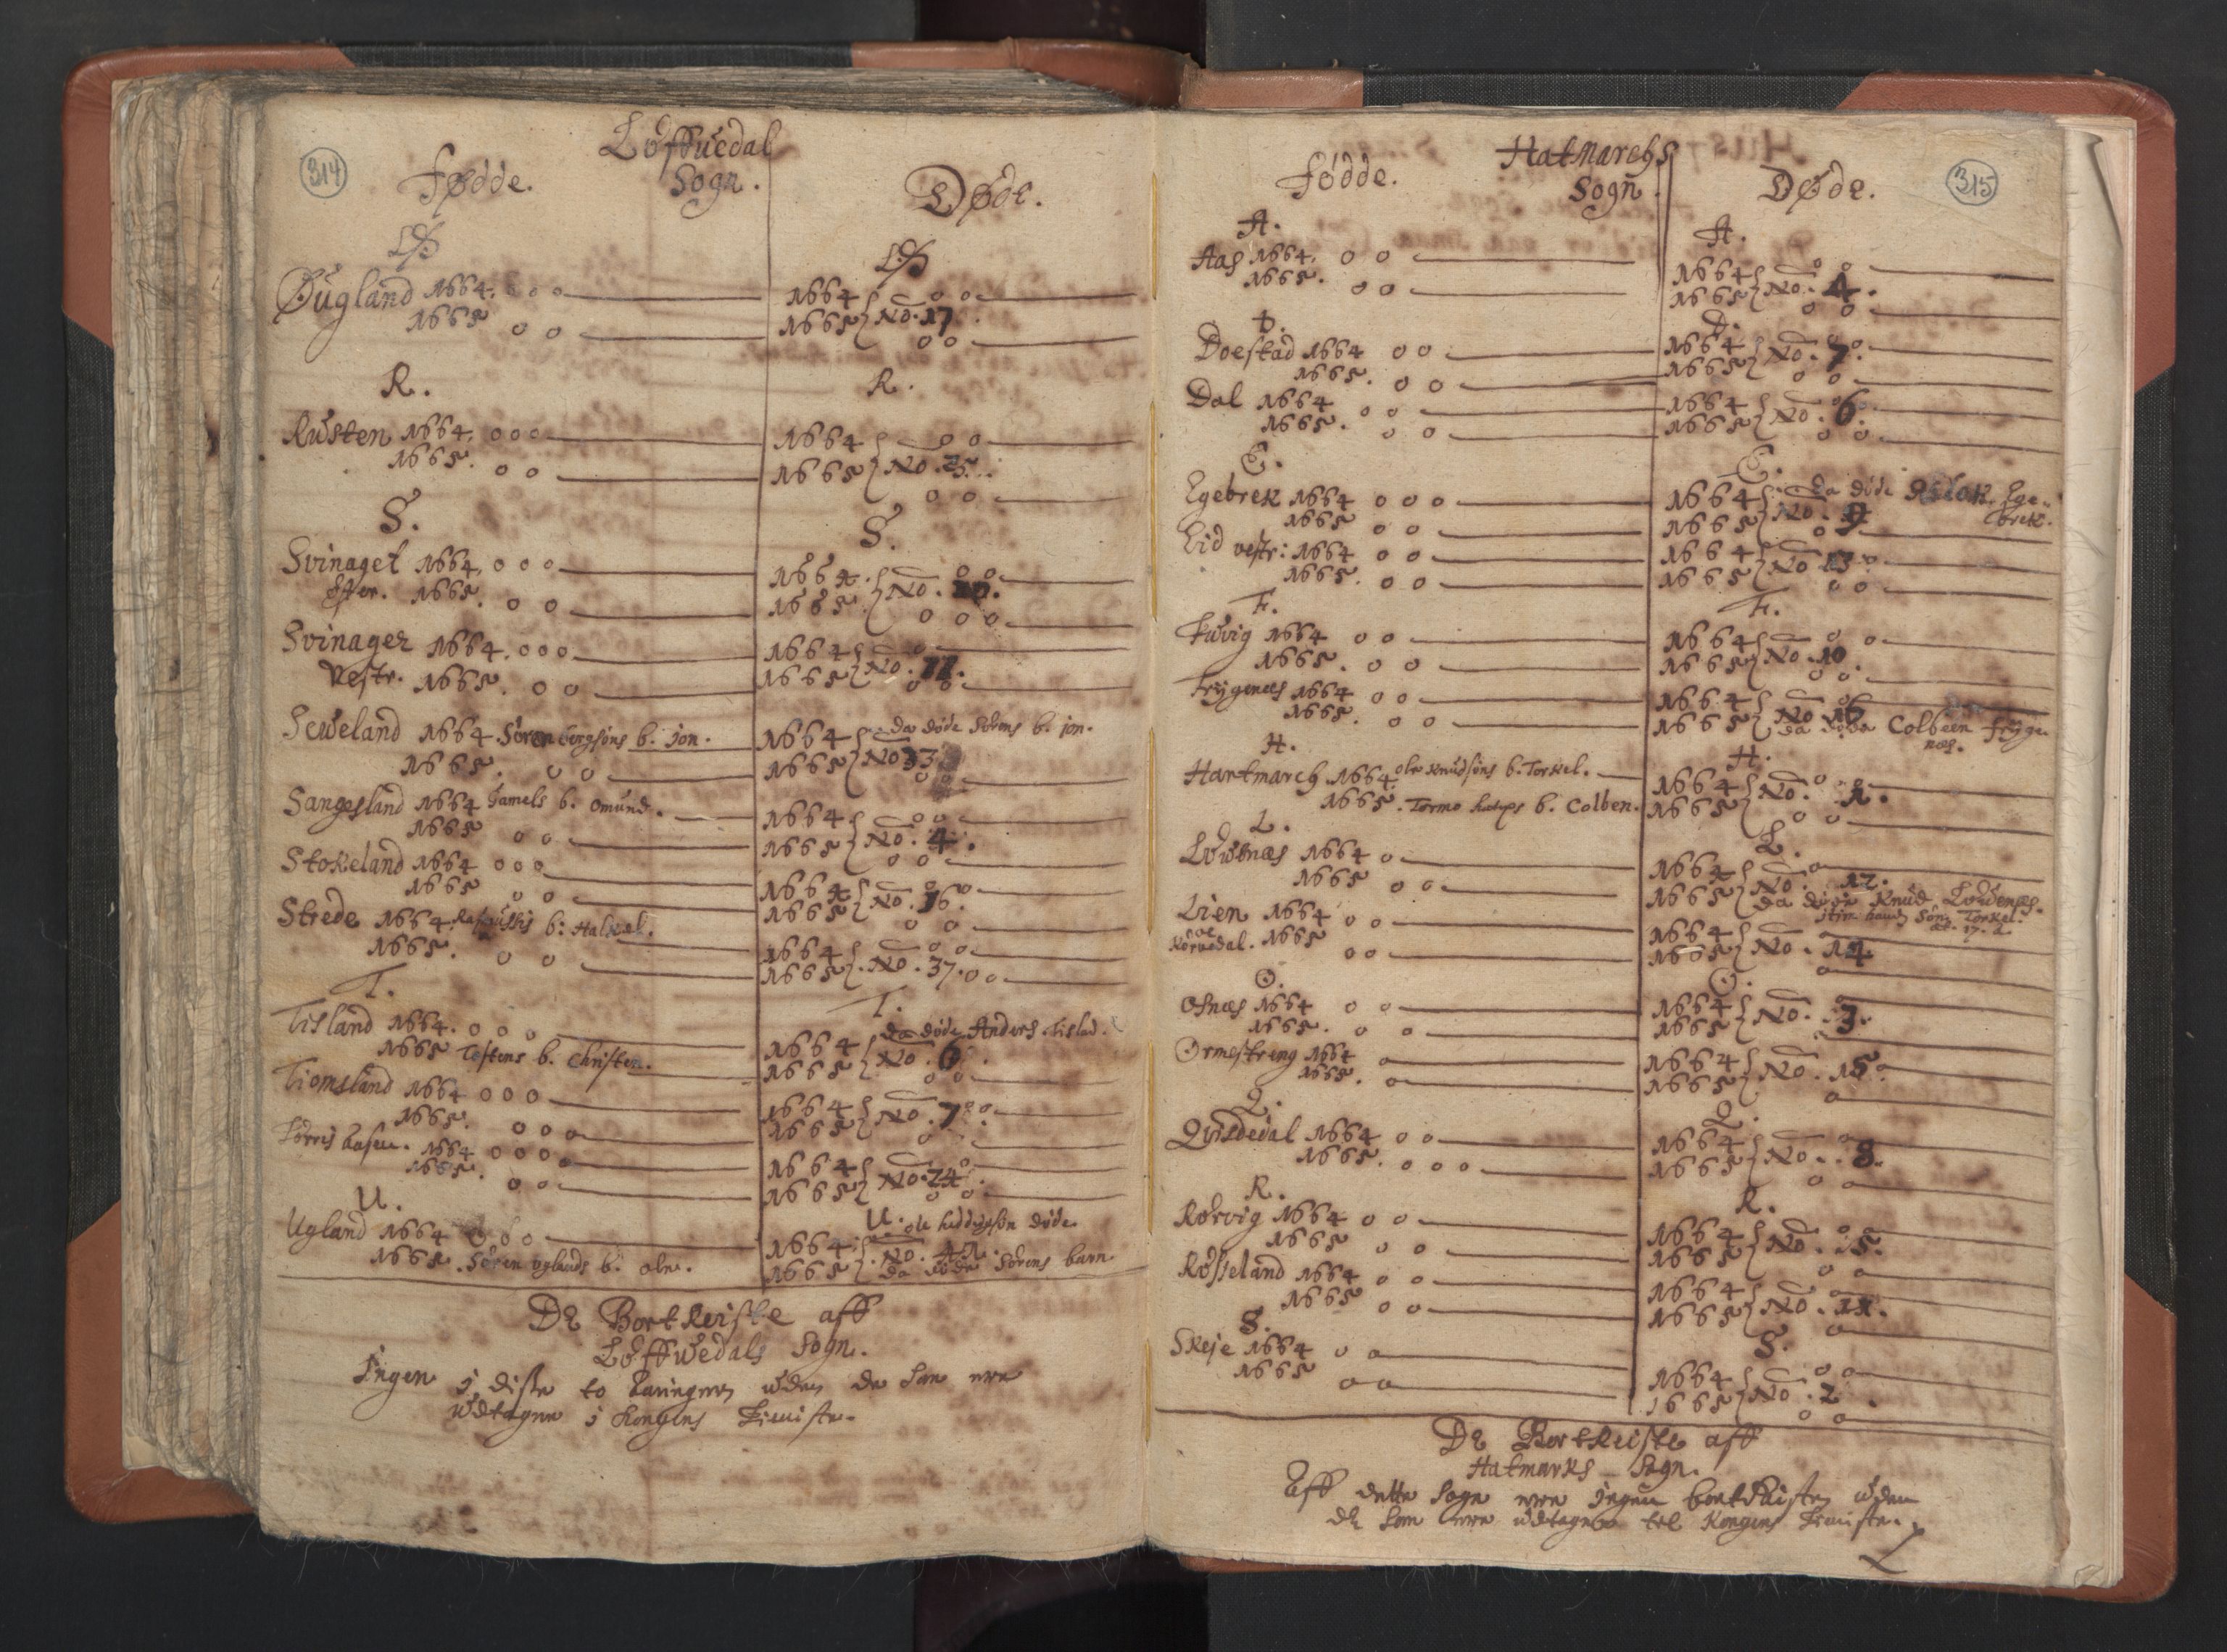 314
Löffuedal
Sogn.
Fødde.
Døde.
Ø
Øugland 1664. o o o
1665 o o
R.
Rusten 1664. o o o
1665. o o
S.
Svinaget 1664. o o o
Øster. 1665. o o
Svinager 1664. o o o
Vestr. 1665. o o
Seweland 1664. Sören bergsöns b. jon.
1665. o o
Sangesland 1664 Gamels b. omund.
1665 o o
Stokeland 1664 o o o
1665 o o
Strede 1664. b: Halkel.
1665. o o
T.
Tisland 1664. o o o
1665 Tostens b. Christen.
Tiomsland 1664 o o o
1665. o o o
1664 o o o o
1665. o o
U.
Ugland 1664 o o o
1665. Sören uglands b. ole.
Ø
1664 o o
1665 No. 17
o o
R.
1664 o o
1665 No. 25.
o o
S.
1664. o o
1665. No.
o o o
1664 o
1665 No. 11.
o o
1664 da døde Sörens b. jon.
1665 No 33
o o
1664 o o
1665 No. 4.
o o
1664 o o
1665 No. 36.
o o
1664 o o
1665. No. 37. o o
T.
1664 da døde Anders Tislad.
1665 No. 6.
o o
1664 o o
1665 No. 7.
o
1664 o
1665 No. 24.
o o
U.
1664 ole døde.
1665 No.
da døde Sörens barn
De Bortreiste aff
Löffwedals Sogn.
Ingen j disse to uden de som ere
udtagne j Kongens Tieniste.
315
Hatmarchs
Sogn.
Fødde.
Døde.
A.
Aas 1664. o o
1665. o o
D.
Doestad 1664 o o
1665. o o
Dal 1664 o o
1665. o o
E.
Egebrek 1664 o o o
1665 o o
Eid vestr: 1664 o o
1665. o o
F.
Fuvig 1664 o o
1665. o o
Frygenæs 1664 o o
1665. o o
H.
Hartmarch 1664 ole Knudsöns b. Torkel.
1665. Tormo b. Colben.
L.
Löwenæs 1664 o
1665 o o
Lien 1664 o o
oc
Körvedal. 1665 o o
O.
Osnæs 1664 o o
1665. o o
Ormestreng 1664 o
1665. o
Q.
Quisdedal 1664 o o
1665. o o o
R.
Rörvig 1664 o o
1665 o o
Rösseland 1664 o o
1665 o o
S.
Skeje 1664 o o
1665 o o
A.
1664 o o
1665 No. 4.
o o
D.
1664 o
1665 No. 7.
o o
1664 o
1665 No. 6.
o o
E.
1664 da døde Ege-
1665 No. 9 brek.
o
1664 o
1665 No 13
o o
F.
1664 o o
1665 No. 10
o o
1664 o
1665 No 16
da døde Colbeen Fryge
næs.
H.
1664 o
1665 No. 1.
o o
L.
1664 o
1665 No. 12.
da døde Knud Löwenæs.
item hans Sön Torkel.
æt. 17. a
1664 o
1665. No. 14
o
O.
1664 o
1665 No. 3.
o
1664 o
1665 No. 15
o
Q.
1664 o
1665 No. 8.
o o
R.
1664 o
1665 No. 5.
o o
1664 o
1665 No. 11.
o
S.
1664 o o
1665 No. 2.
o o
De Bortreiste aff
Hatmarks Sogn.
Aff dette Sogn ere ingen bortreister uden
de som ere udtagen til Kongens Tieniste.